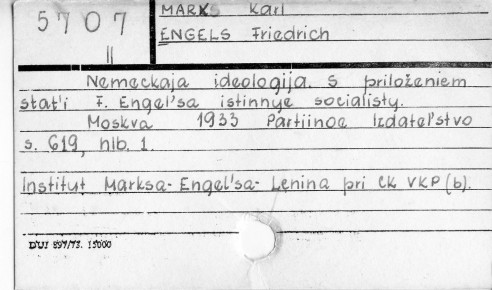 5707
II
MARKS Karl
ENGELS Friedrich
Nemeckaja ideologija. S priloženiem
stat'i F. Engel'sa istinnye socialisty.
Moskva 1933 Partiinoe Izdatel'stvo
s. 619, nlb. 1.
Institut Marksa-Engel'sa-Lenina pri CK VKP(b).
DUI 897/73. 15000